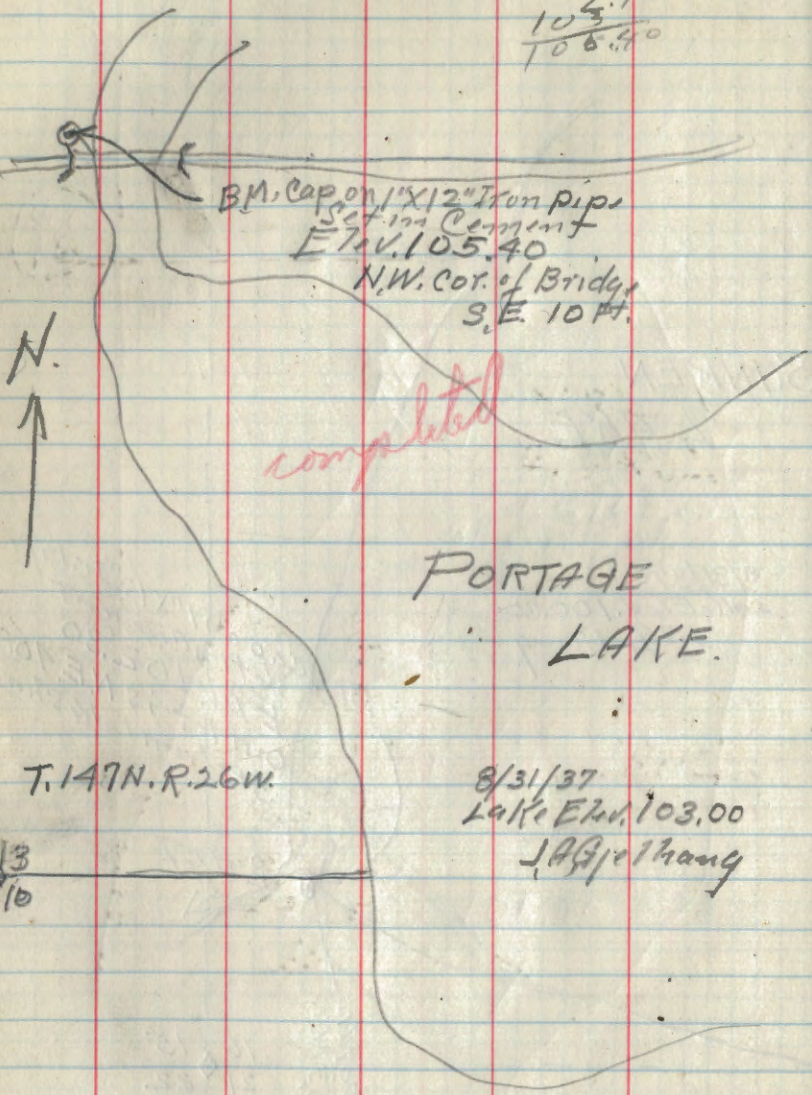 103
105.40
B.M. Cap on 1"X12" Iron pipe
Set in Cement
Elev. 105.40
N.W. Cor. of Bridge
S.E. 10 Ft.
N.
completed
PORTAGE
LAKE.
T.147N.R.26W.
8/31/37
Lake Elev. 103.00
13
10